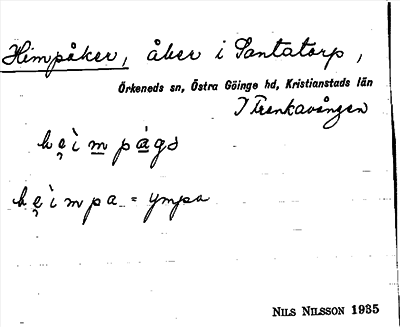 Himpåker, åker i Santatorp,
Örkeneds sn, Östra Göinge hd, Kristianstads län
I Frenkavången
hęìmpágs
hęìmpa = ympa
NILS NILSSON 1935